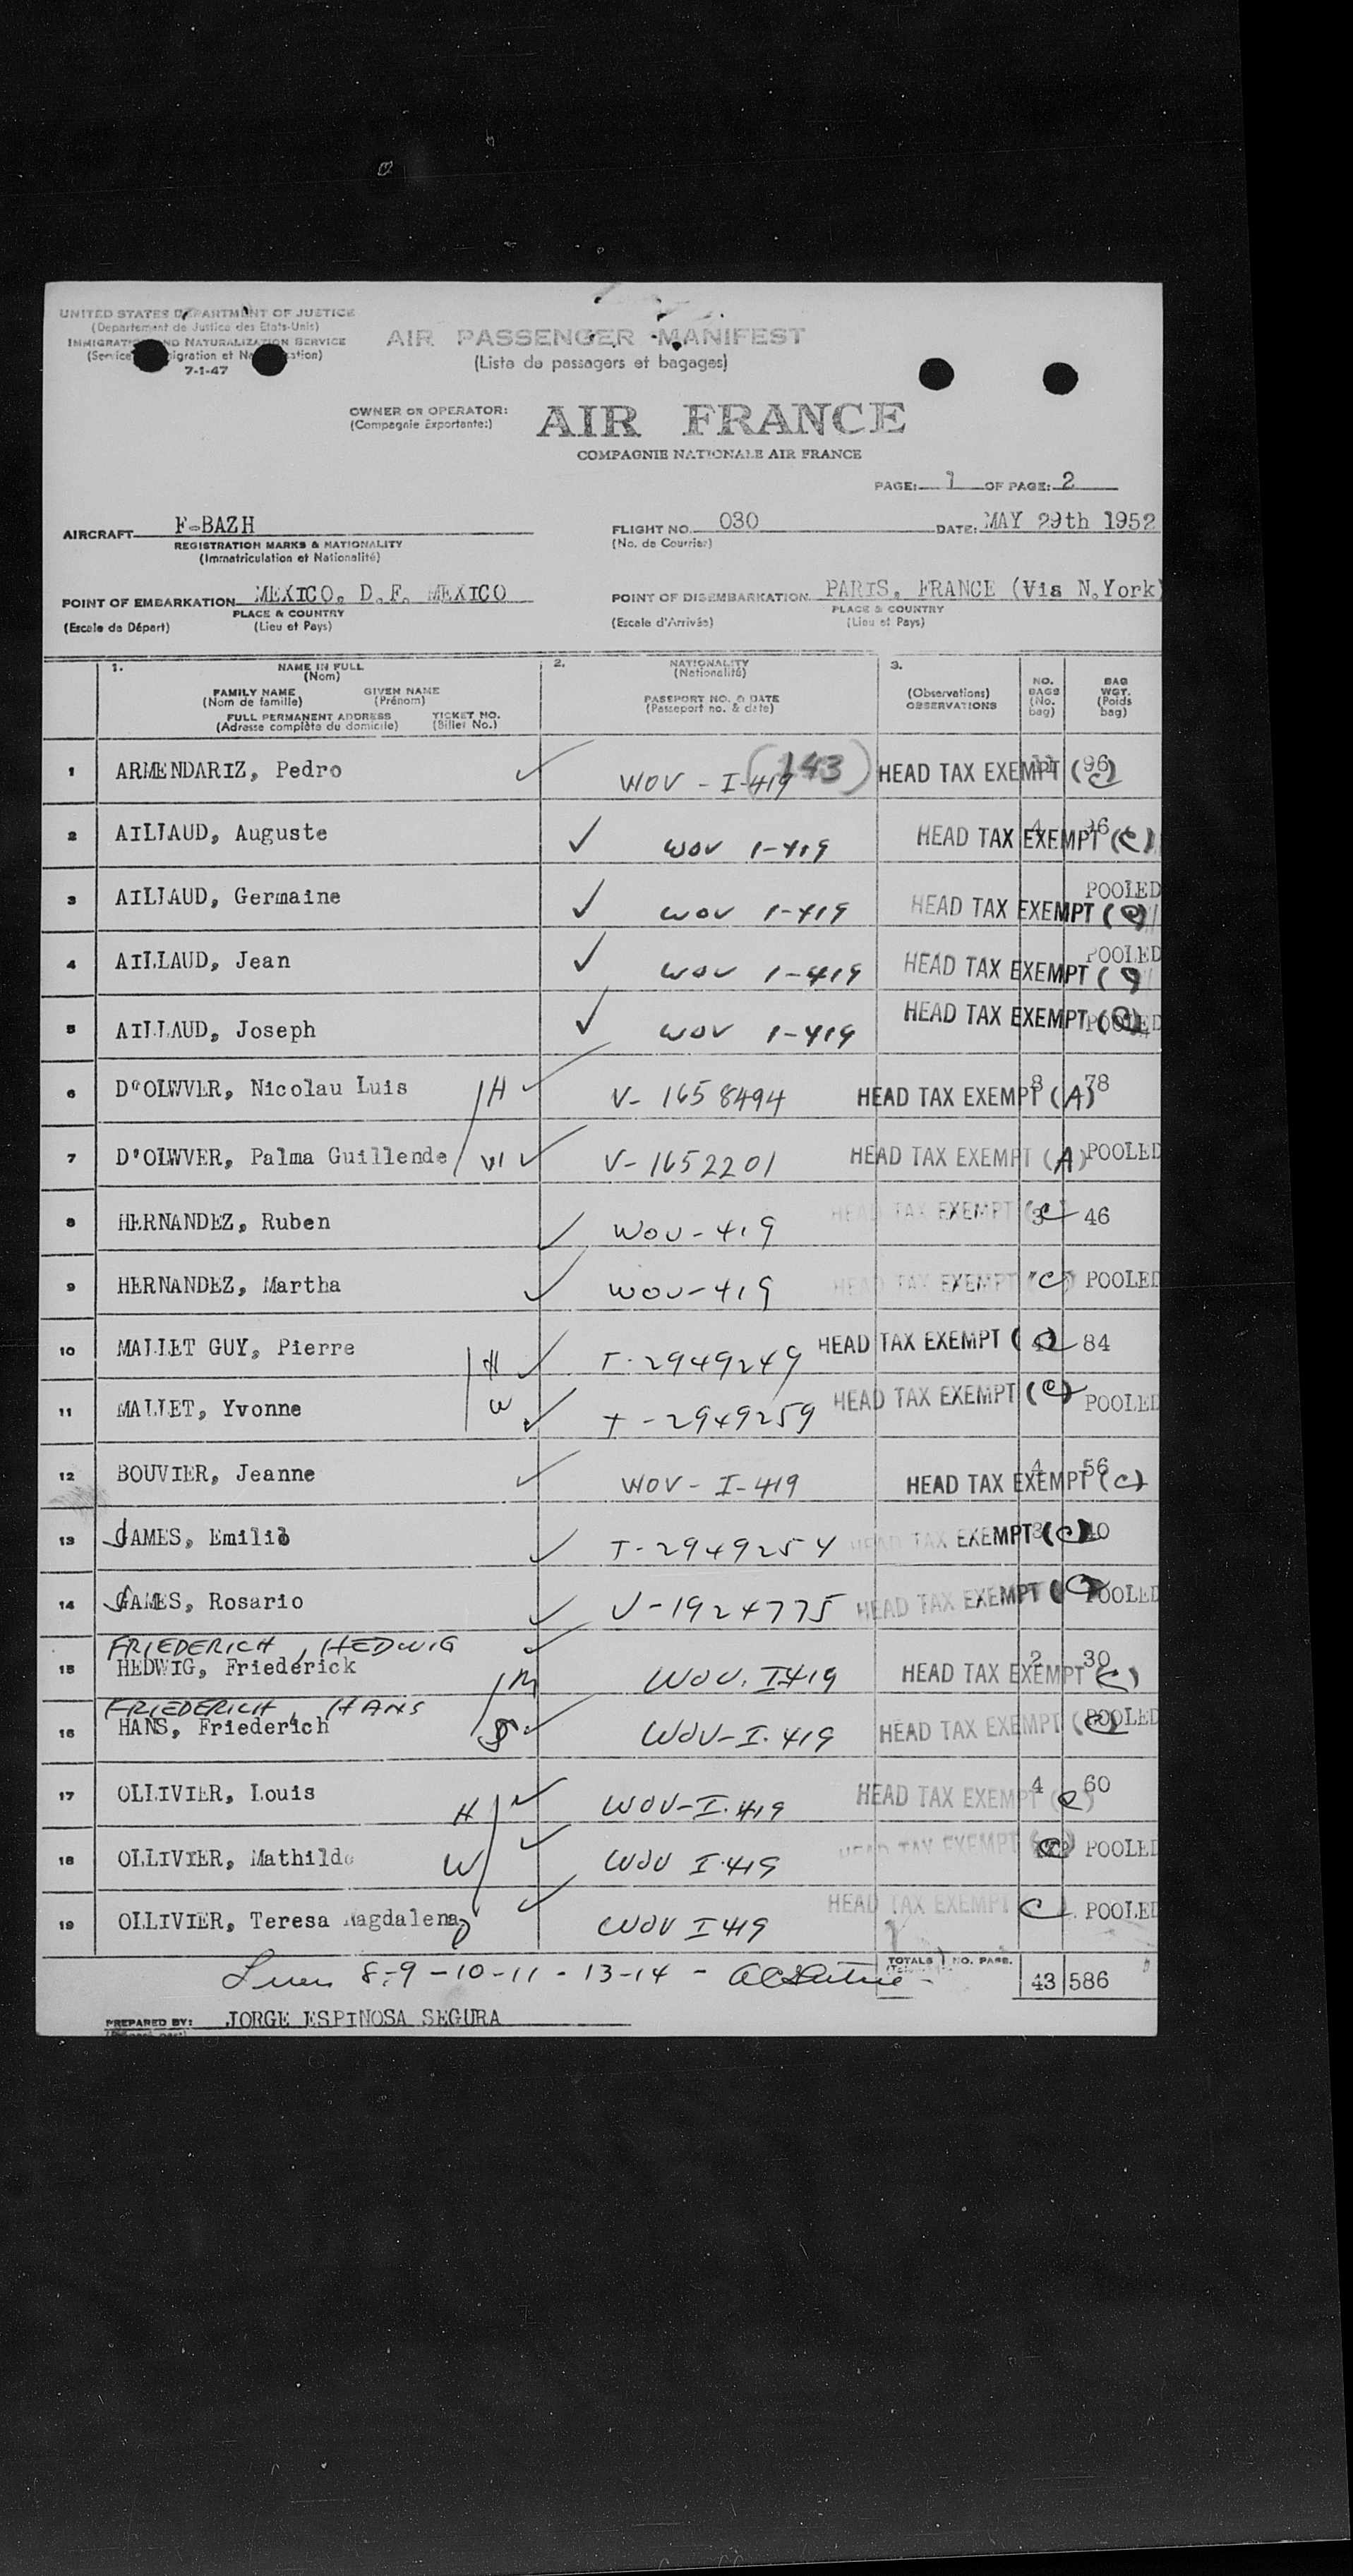 UNITED STATES DEPARTMENT OF JUSTICE
(Departement de Justice des Etats-Unis)
IMMIGRATION AND NATURALIZATION SERVICE
7-1-47
AIR PASSENGER MANIFEST
(Liste de passagers et bagages)
OWNER OR OPERATOR:
(Compagnie Exportante:)
AIR FRANCE
COMPAGNIE NATIONALE AIR FRANCE
PAGE: 1 OF PAGE: 2
AIRCRAFT F-BAZH
REGISTRATION MARKS & NATIONALITY
(Immatriculation et Nationalité)
FLIGHT NO. 030
(No. de Courrier)
DATE: MAY 29th 1952
POINT OF EMBARKATION MEXICO, D.F. MEXICO
PLACE & COUNTRY
(Escale de Départ) (Lieu et Pays)
POINT OF DISEMBARKATION PARIS, FRANCE (Via N.York)
PLACE & COUNTRY
(Escale d'Arrivée) (Lieu et Pays)
1. NAME IN FULL
(Nom)
FAMILY NAME GIVEN NAME
(Nom de famille) (Prénom)
FULL PERMANENT ADDRESS TICKET NO.
(Adresse complète du domicile) (Billet No.)
2. NATIONALITY
(Nationalité)
PASSPORT NO. & DATE
(Passeport no. & date)
3.
(Observations)
OBSERVATIONS
NO.
BAGS
(No.
bag)
BAG
WGT.
(Poids
bag)
1 ARMENDARIZ, Pedro WOV - I-419 (143) HEAD TAX EXEMPT (C) 96
2 AILLAUD, Auguste WOV 1-419 HEAD TAX EXEMPT (C) 4
3 AILLAUD, Germaine WOV 1-419 HEAD TAX EXEMPT (C) POOLED
4 AILLAUD, Jean WOV 1-419 HEAD TAX EXEMPT (C) POOLED
5 AILLAUD, Joseph WOV 1-419 HEAD TAX EXEMPT (C) POOLED
6 D'OLWVER, Nicolau Luis H V-1658494 HEAD TAX EXEMPT (A) 8 78
7 D'OLWVER, Palma Guillende W V-1652201 HEAD TAX EXEMPT (A) POOLED
8 HERNANDEZ, Ruben WOV-419 HEAD TAX EXEMPT (C) 3 46
9 HERNANDEZ, Martha WOV-419 HEAD TAX EXEMPT (C) POOLED
10 MALLET GUY, Pierre H T-2949249 HEAD TAX EXEMPT (C) 84
11 MALLET, Yvonne W T-2949259 HEAD TAX EXEMPT (C) POOLED
12 BOUVIER, Jeanne WOV - I-419 HEAD TAX EXEMPT (C) 4 56
13 GAMES, Emilio T-2949254 HEAD TAX EXEMPT (C) 3 40
14 GAMES, Rosario V-1924775 HEAD TAX EXEMPT (C) POOLED
FRIEDERICH, HEDWIG
15 HEDWIG, Friederick M WOV. I-419 HEAD TAX EXEMPT (C) 2 30
FRIEDERICH, HANS
16 HANS, Friederich S WOV-I-419 HEAD TAX EXEMPT (C) POOLED
17 OLLIVIER, Louis H WOV-I-419 HEAD TAX EXEMPT (C) 4 60
18 OLLIVIER, Mathilde W WOV I-419 HEAD TAX EXEMPT (C) POOLED
19 OLLIVIER, Teresa Magdalena D WOV I 419 HEAD TAX EXEMPT C POOLED
8-9-10-11-13-14 -
TOTALS NO. PASS. 43 586
PREPARED BY: JORGE ESPINOSA SEGURA